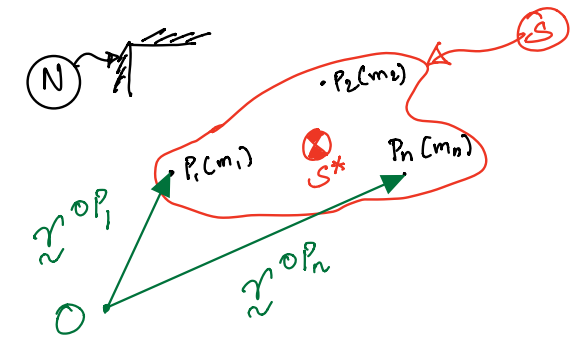 S
N
P₂(m₂)
P₁(m₁)
Pₙ(mₙ)
S*
r^OP₁
r^OPₙ
O